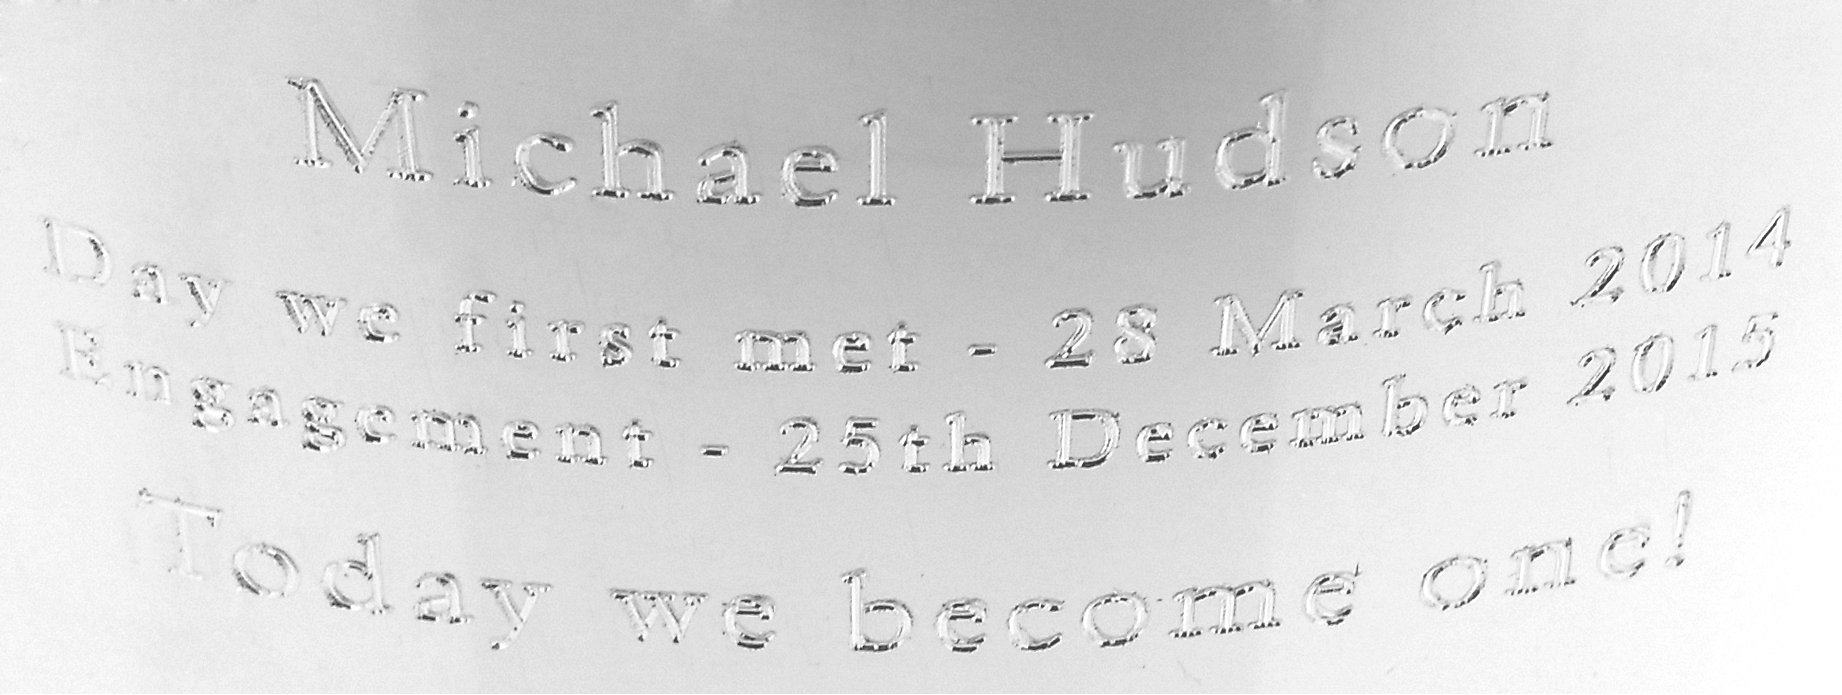 Michael Hudson
Day we first met - 28 March 2014
Engagement - 25th December 2015
Today we become one!